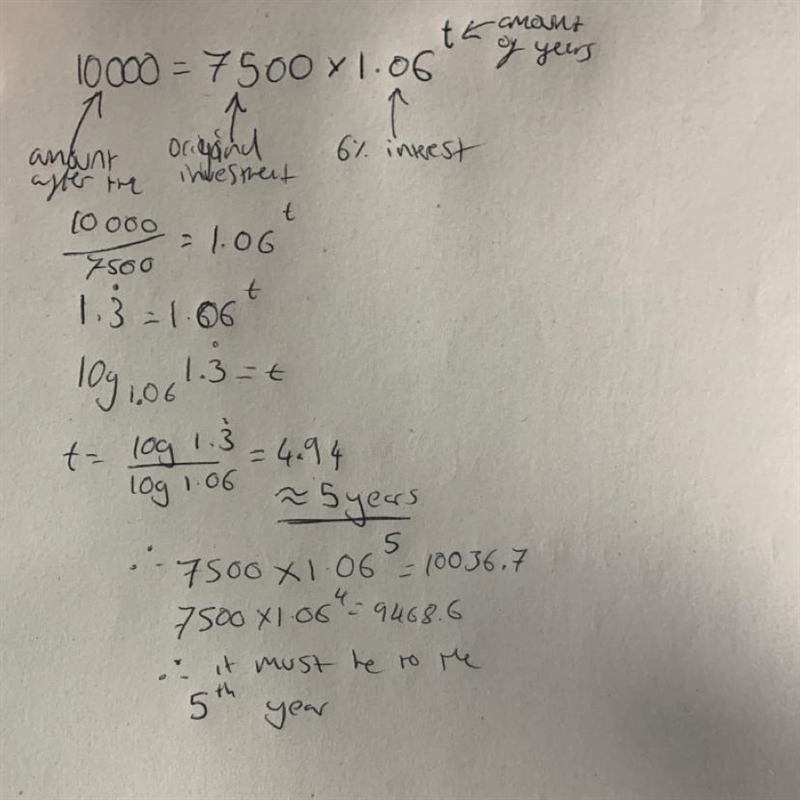 10000 = 7500 × 1.06^t ← amount of years
amount after the
original investment
6% interest
10 000 / 7500 = 1.06^t
1.3̇ = 1.06^t
log_1.06 1.3̇ = t
t = log 1.3̇ / log 1.06 = 4.94
≈ 5 years
∴ 7500 × 1.06^5 = 10036.7
7500 × 1.06^4 = 9468.6
∴ it must be to the
5th year